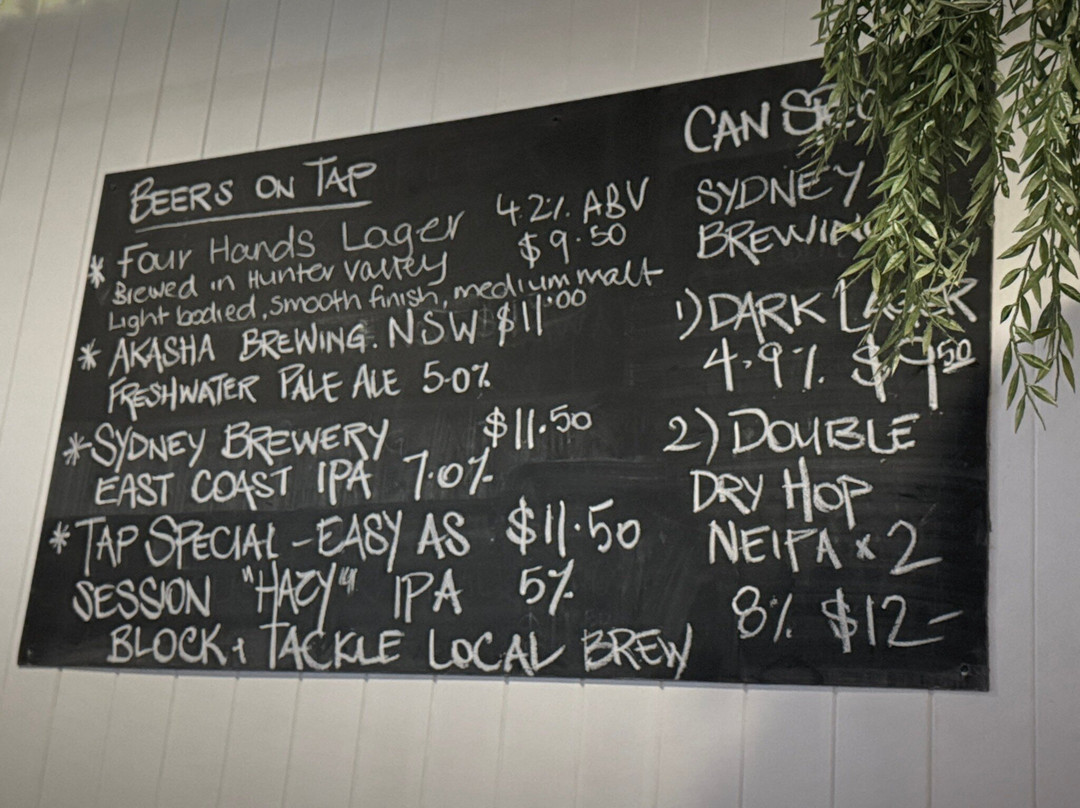 BEERS ON TAP
* Four Hands Lager 4.2% ABV
Brewed in Hunter Valley $9.50
Light bodied, smooth finish, medium malt
* AKASHA BREWING. NSW $11.00
FRESHWATER PALE ALE 5.0%
* SYDNEY BREWERY $11.50
EAST COAST IPA 7.0%
* TAP SPECIAL - EASY AS $11.50
SESSION "HAZY" IPA 5%
BLOCK & TACKLE LOCAL BREW
CAN
SYDNEY
1) DARK LAGER
4.9% $9.50
2) DOUBLE
DRY HOP
NEIPA x 2
8% $12-